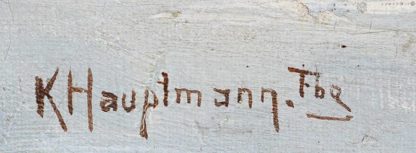 K Hauptmann. Fbg